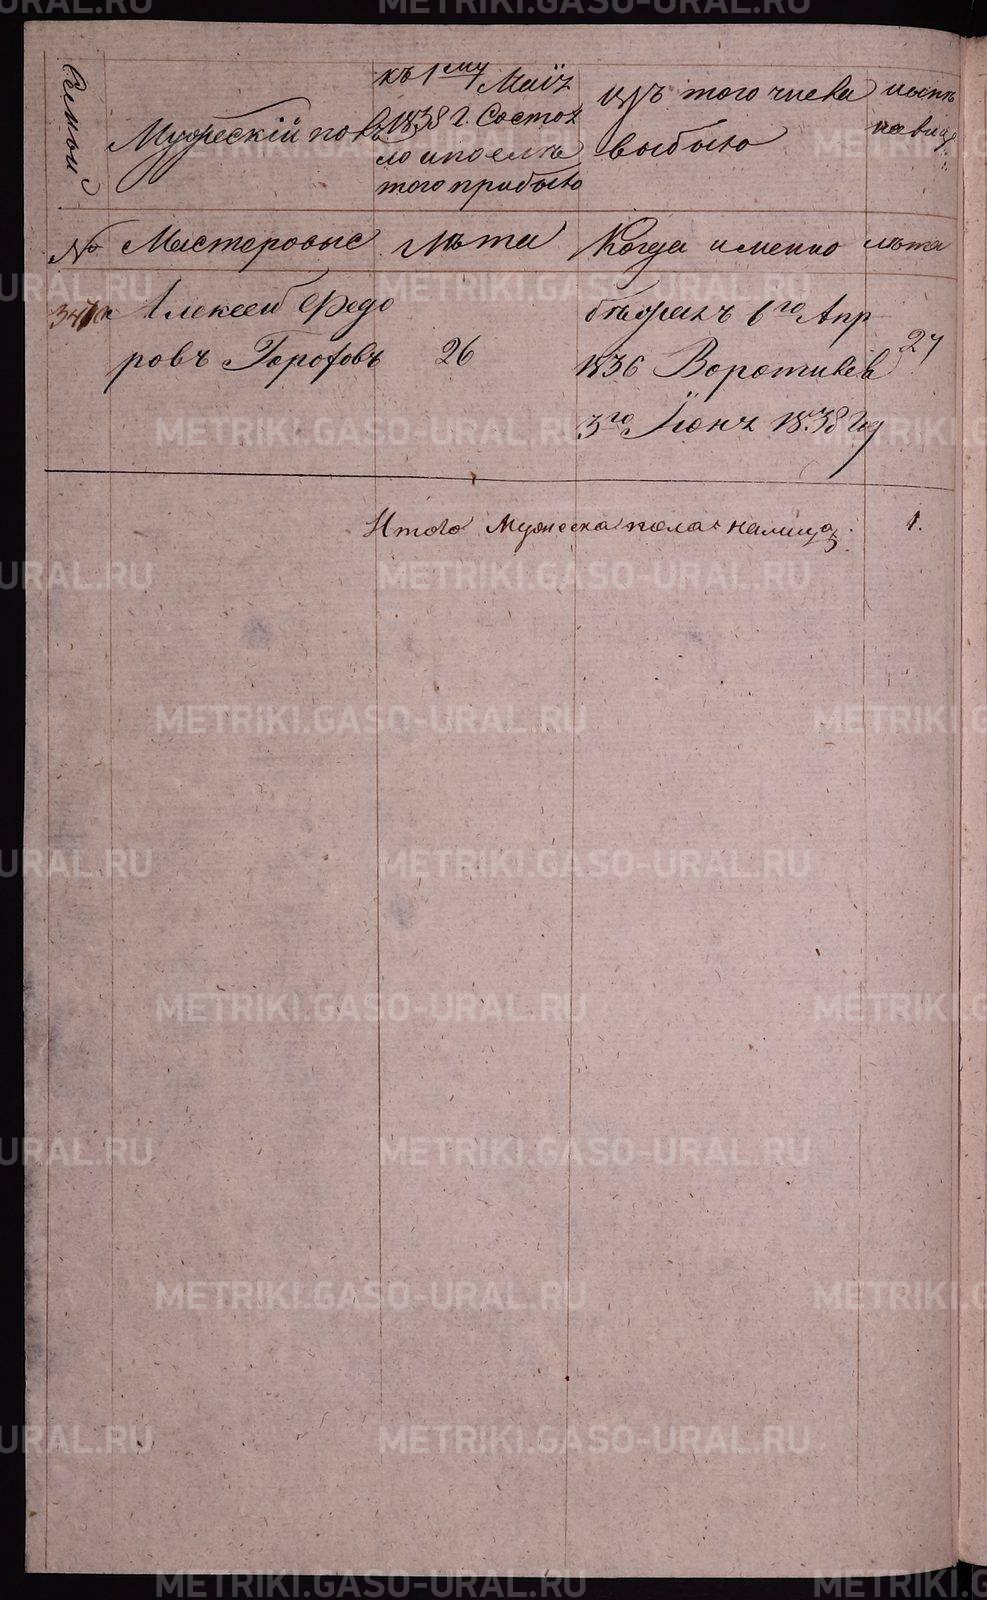 Семьи
Мужескій полъ
къ 1му Маія
1838 г. Состоя
ло и послѣ
того прибыло
изъ того числа
выбыло
нынѣ
на лицо
№
Мастеровые
Лѣта
Когда именно
лѣта
Алексей Федо
ровъ Гороховъ
26
бѣжалъ 6го Апр
1836 Воротился
3го Іюня 1838 год
27
Итого Мужеска пола налицо
1.
METRIKI.GASO-URAL.RU